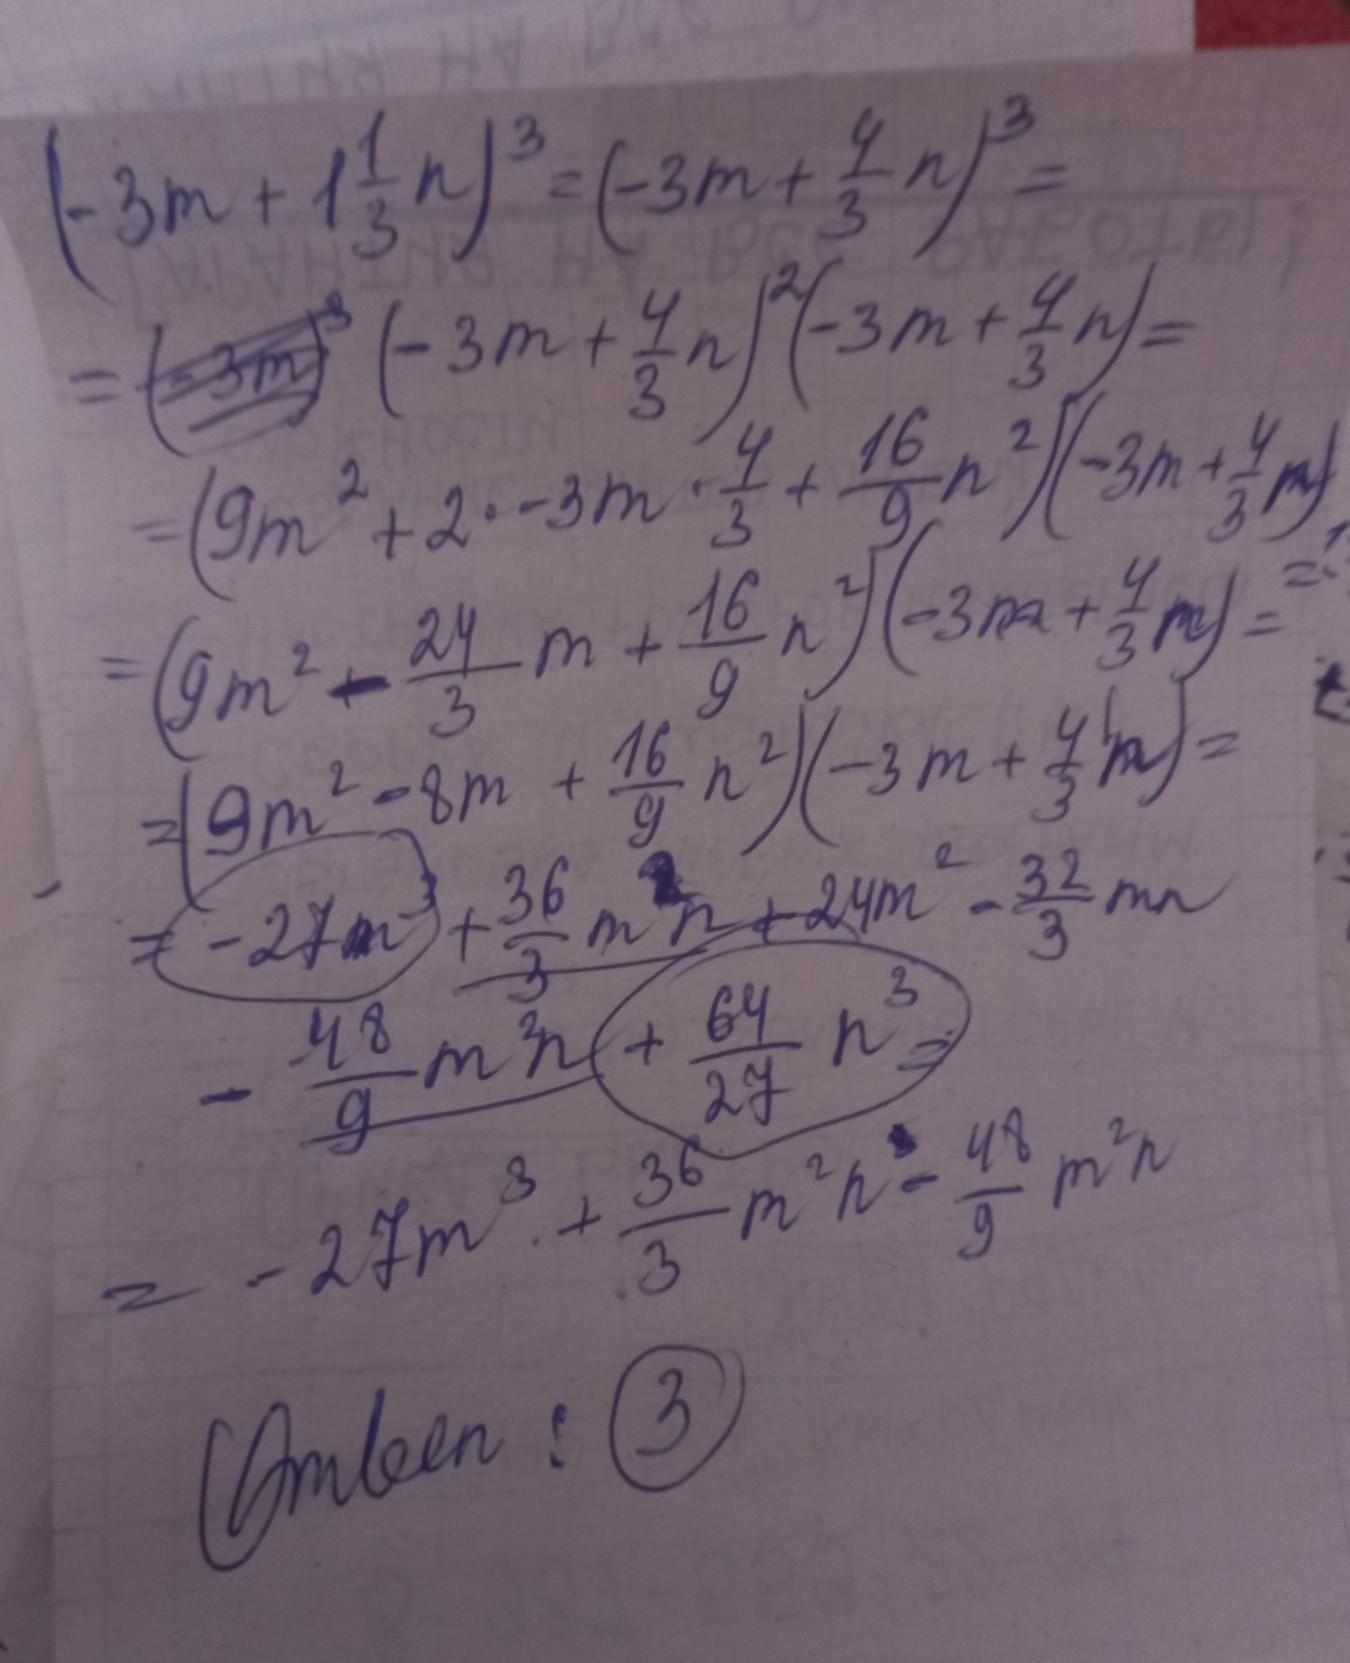 (-3m + 1 1/3 n)³ = (-3m + 4/3 n)³ =
= (-3m)³ (-3m + 4/3 n)² (-3m + 4/3 n) =
= (9m² + 2 · -3m · 4/3 + 16/9 n²)(-3m + 4/3 n) =
= (9m² - 24/3 m + 16/9 n²)(-3m + 4/3 n) =
= (9m² - 8m + 16/9 n²)(-3m + 4/3 n) =
= -27m³ + 36/3 m²n + 24m² - 32/3 mn
- 48/9 m²n + 64/27 n³ =
= -27m³ + 36/3 m²n - 48/9 m²n
Ответ: 3